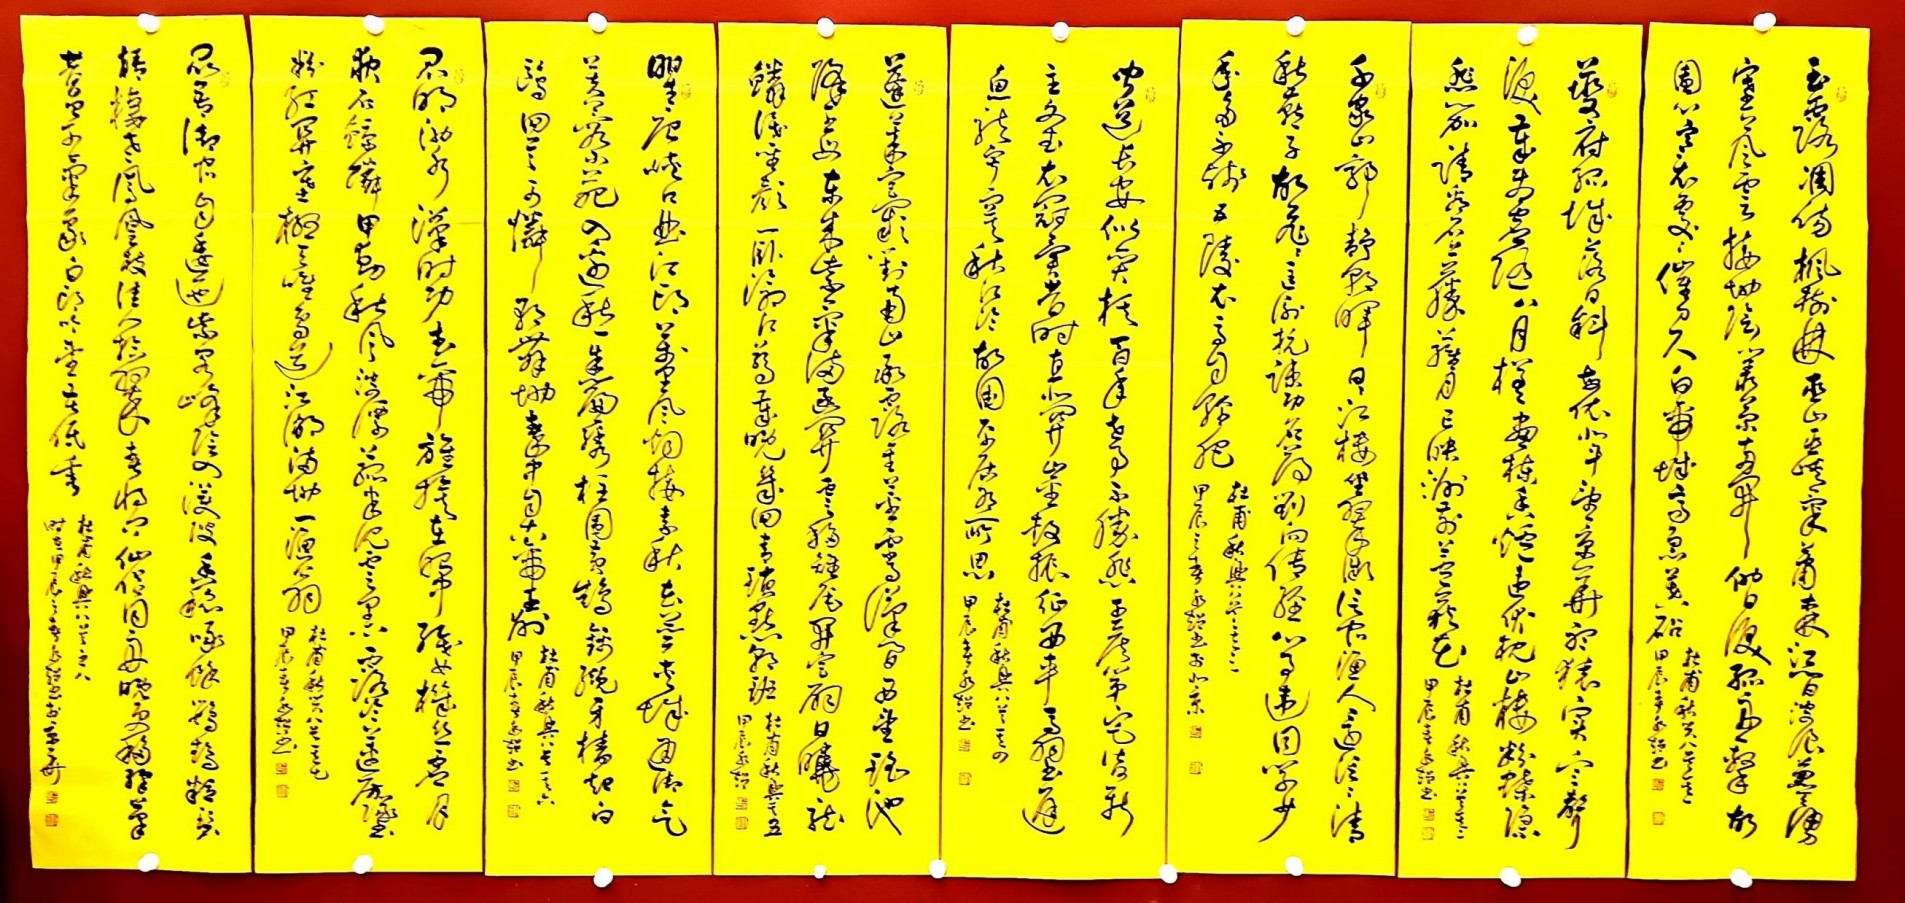 玉露凋傷楓樹林巫山巫峽氣蕭森江間波浪兼天湧
塞上風雲接地陰叢菊兩開他日淚孤舟一繫故
園心寒衣處處催刀尺白帝城高急暮砧
杜甫秋興八首之一
甲辰年春永超書
夔府孤城落日斜每依北斗望京華聽猿實下三聲
淚奉使虛隨八月槎畫省香爐違伏枕山樓粉堞隱
悲笳請看石上藤蘿月已映洲前蘆荻花
杜甫秋興八首之二
甲辰年春永超書
千家山郭靜朝暉日日江樓坐翠微信宿漁人還泛泛清
秋燕子故飛飛匡衡抗疏功名薄劉向傳經心事違同學少
年多不賤五陵衣馬自輕肥
杜甫秋興八首之三
甲辰之春永超書於北京
聞道長安似弈棋百年世事不勝悲王侯第宅皆新
主文武衣冠異昔時直北關山金鼓振征西車馬羽書遲
魚龍寂寞秋江冷故國平居有所思
杜甫秋興八首之四
甲辰春永超書
蓬萊宮闕對南山承露金莖霄漢間西望瑤池
降王母東來紫氣滿函關雲移雉尾開宮扇日繞龍
鱗識聖顏一臥滄江驚歲晚幾回青瑣點朝班
杜甫秋興之五
甲辰永超
瞿唐峽口曲江頭萬里風煙接素秋花萼夾城通御氣
芙蓉小苑入邊愁珠簾繡柱圍黃鵠錦纜牙檣起白
鷗回首可憐歌舞地秦中自古帝王州
杜甫秋興八首之六
甲辰春永超書
昆明池水漢時功武帝旌旗在眼中織女機絲虛月
夜石鯨鱗甲動秋風波漂菰米沉雲黑露冷蓮房墜
粉紅關塞極天唯鳥道江湖滿地一漁翁
杜甫秋興八首之七
甲辰春永超書
昆吾御宿自逶迤紫閣峰陰入渼陂香稻啄餘鸚鵡粒碧
梧棲老鳳凰枝佳人拾翠春相問仙侶同舟晚更移彩筆
昔曾干氣象白頭吟望苦低垂
杜甫秋興八首之八
時在甲辰之春永超書於京華